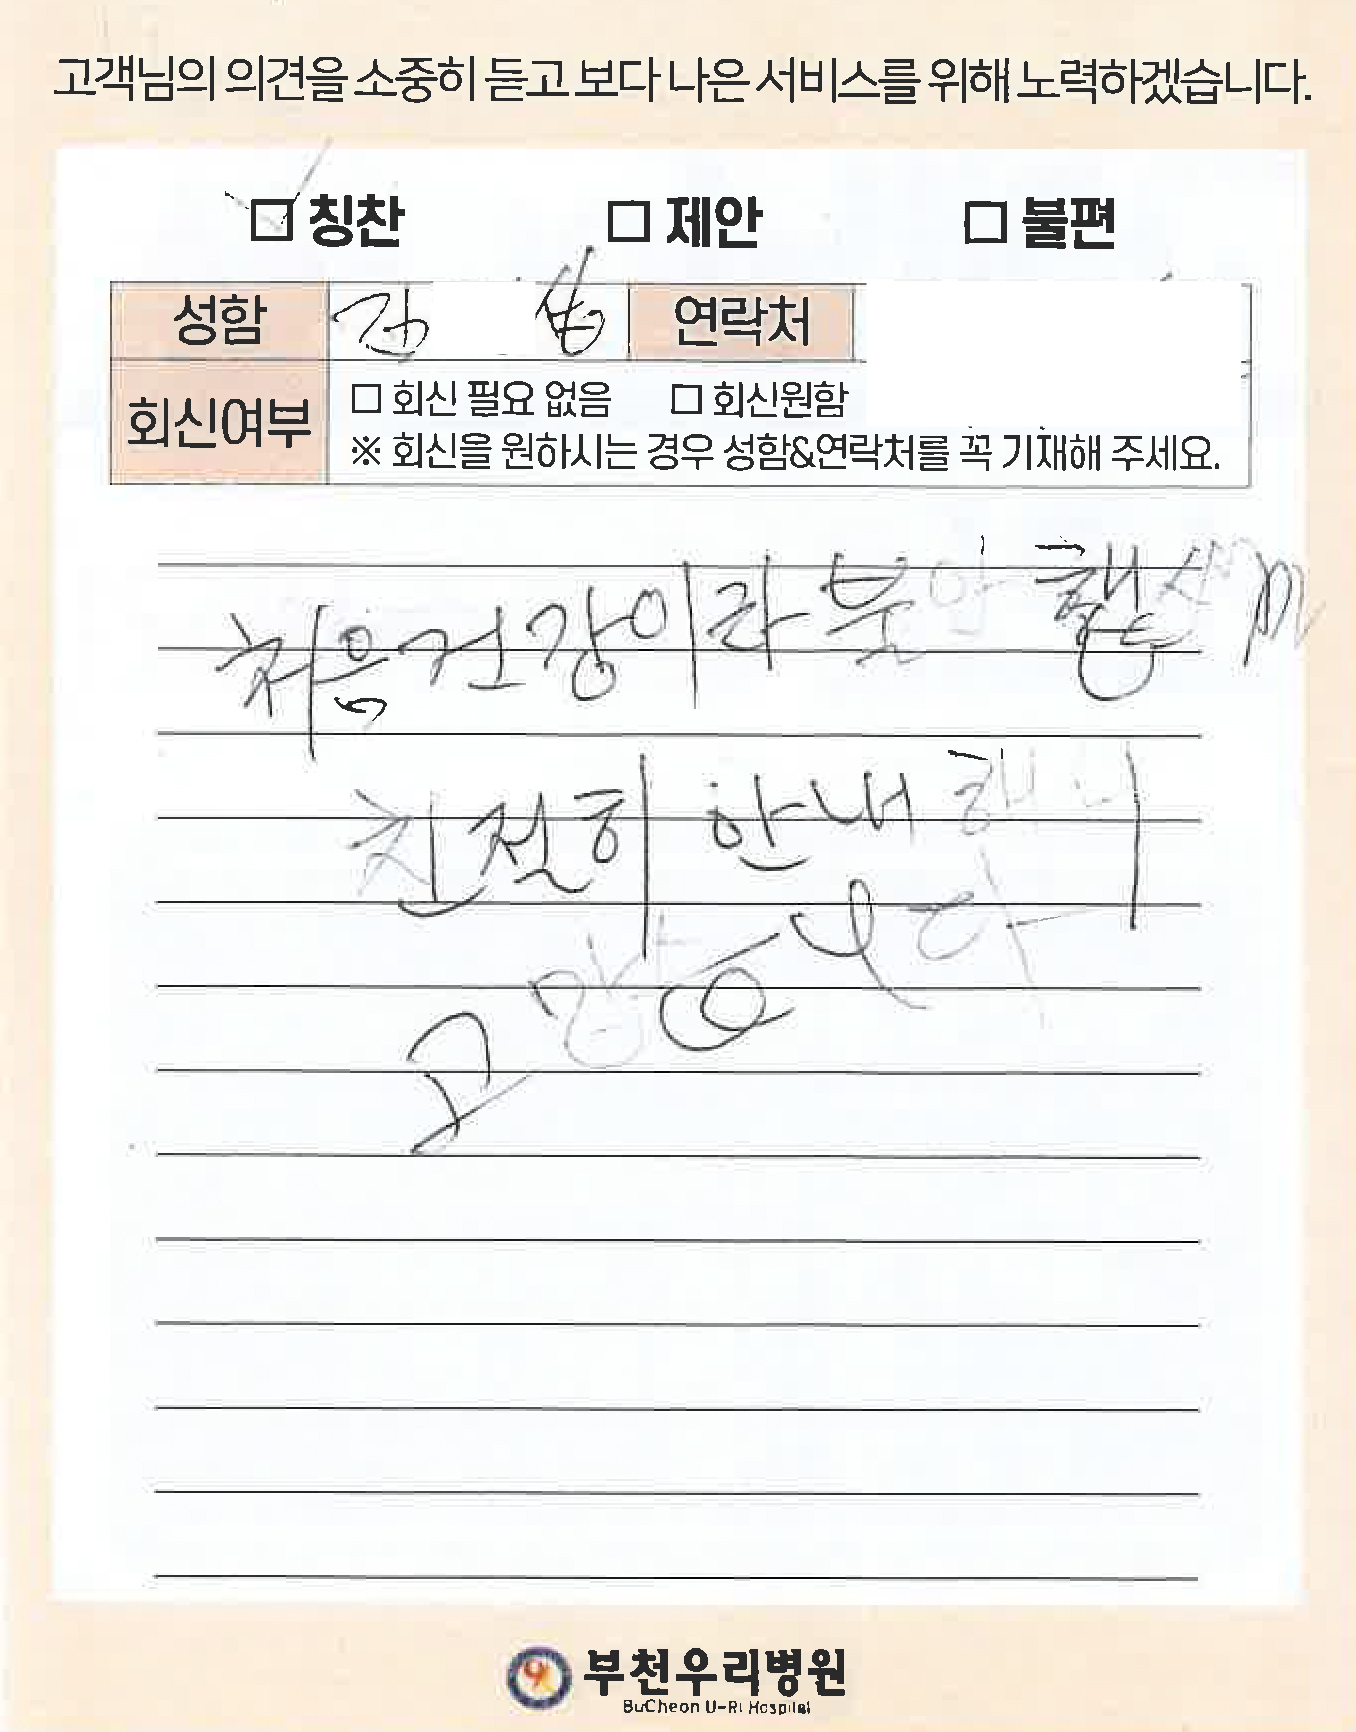 고객님의 의견을 소중히 듣고 보다 나은 서비스를 위해 노력하겠습니다.
□ 칭찬 □ 제안 □ 불편
성함 연락처
회신여부 □ 회신 필요 없음 □ 회신원함
※ 회신을 원하시는 경우 성함&연락처를 꼭 기재해 주세요.
처음 건강이라 불안
친절히 안내 해
고맙습니다
부천우리병원
BuCheon U-Ri Hospital